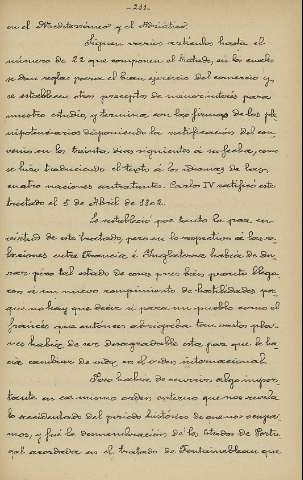 - 211. -
en el Mediterráneo y el Adriático.
Siguen varios artículos hasta el
número de 22 que componen el tratado, en los cuales
se dan reglas para el buen ejercicio del comercio y
se establecen otros preceptos de menor interés para
nuestro estudio, y termina con las firmas de los ple
nipotenciarios disponiendo la ratificación del con
venio en los treinta días siguientes á su fecha, como
se hizo traduciendo el texto á los idiomas de las
cuatro naciones contratantes. Carlos IV ratificó este
tratado el 5 de Abril de 1802.
Se estableció por tanto la paz en
virtud de este tratado, pero en lo respectivo á las re
laciones entre Francia é Inglaterra habia de du-
rar poco tal estado de cosas pues bien pronto llega
ron á un nuevo rompimiento de hostilidades por
que no hay que decir q. para un pueblo como el
francés que entonces abrigaba tan vastos pla-
nes habia de ser desagradable esta paz que le ha
cía cambiar de vida en el orden internacional.
Pero hubo de ocurrir algo impor
tante en ese mismo orden externo que nos revela
lo accidentado del período histórico de que nos ocupa
mos, y fué la desmembración de los Estados de Portu
gal acordada en el tratado de Fontainebleau que